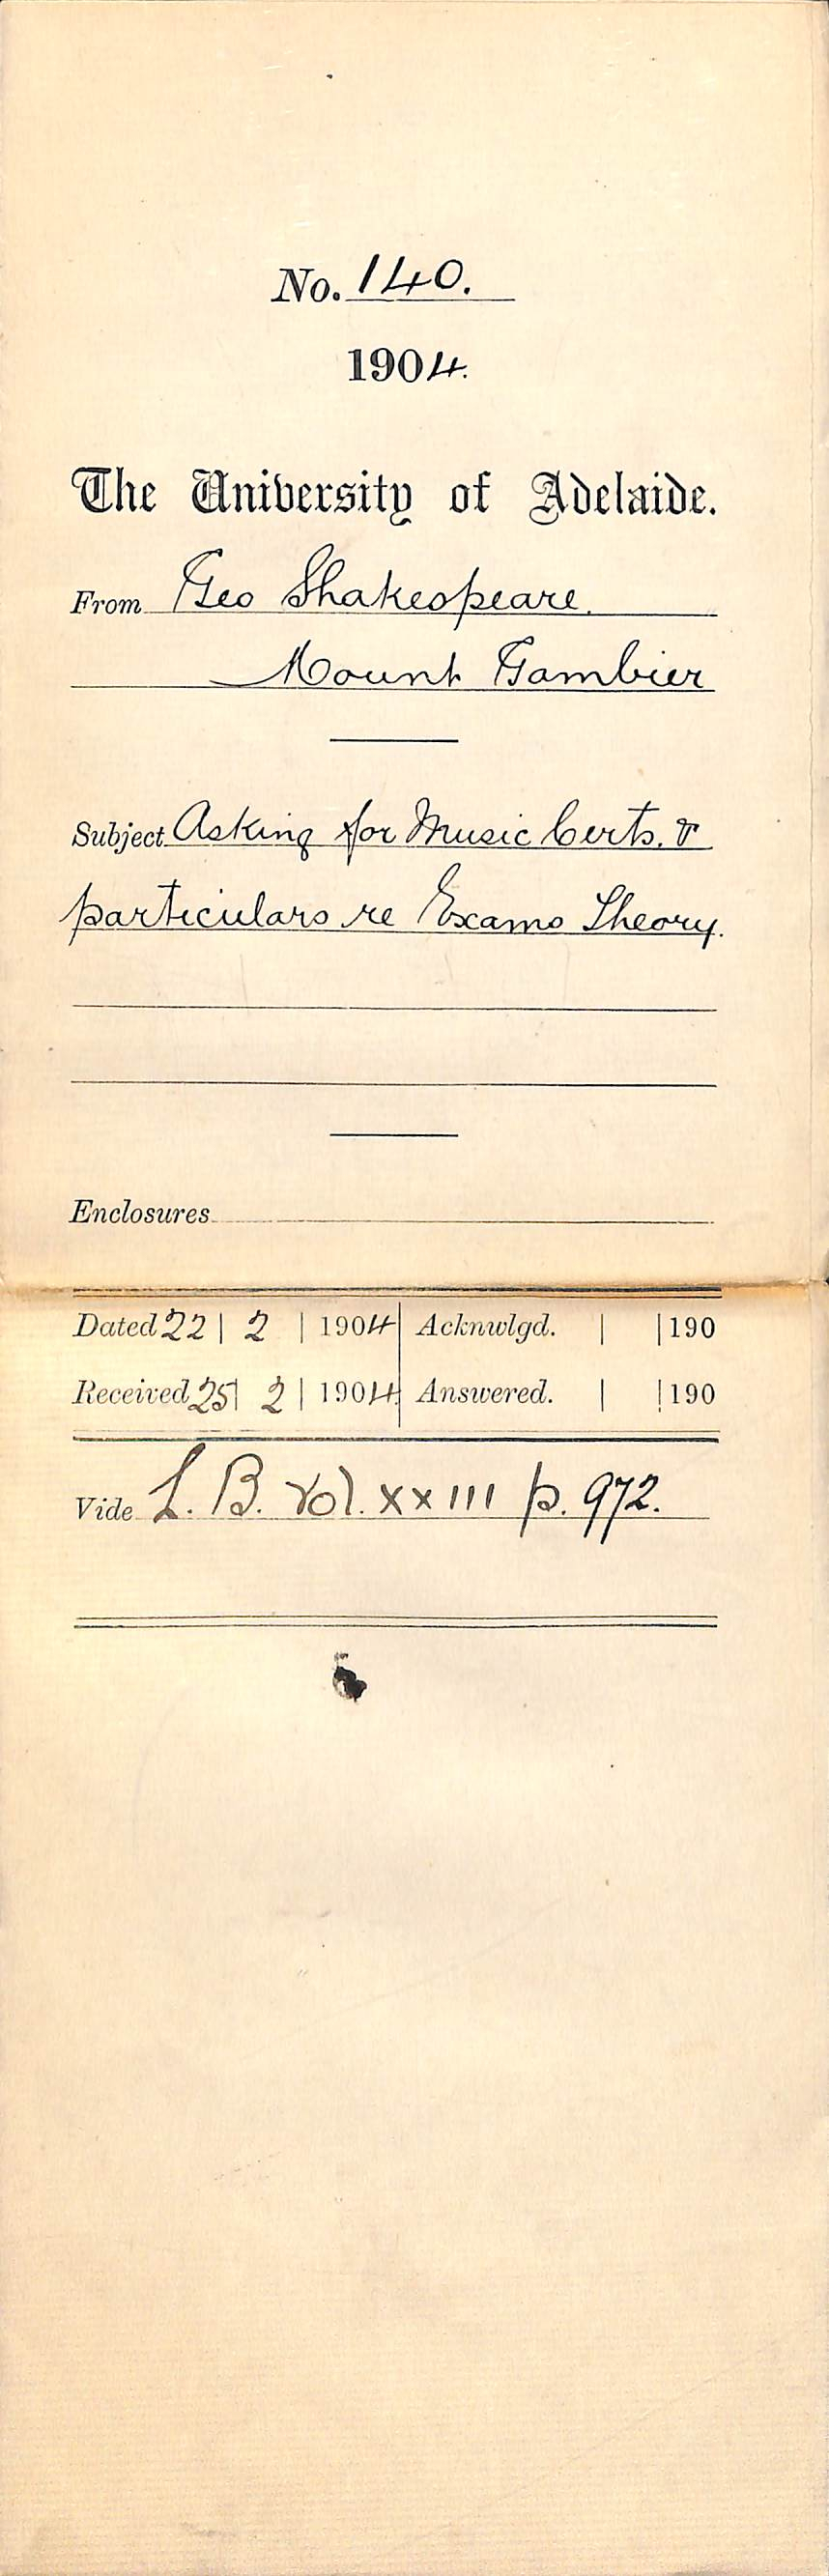 No. 140.
1904.
The University of Adelaide.
From Geo Shakespeare.
Mount Gambier
Subject Asking for Music Certs. &
particulars re Exams Theory.
Enclosures
Dated 22 | 2 | 1904 Acknwlgd. | | 190
Received 25 | 2 | 1904 Answered. | | 190
Vide L. B. Vol. XXIII p. 972.